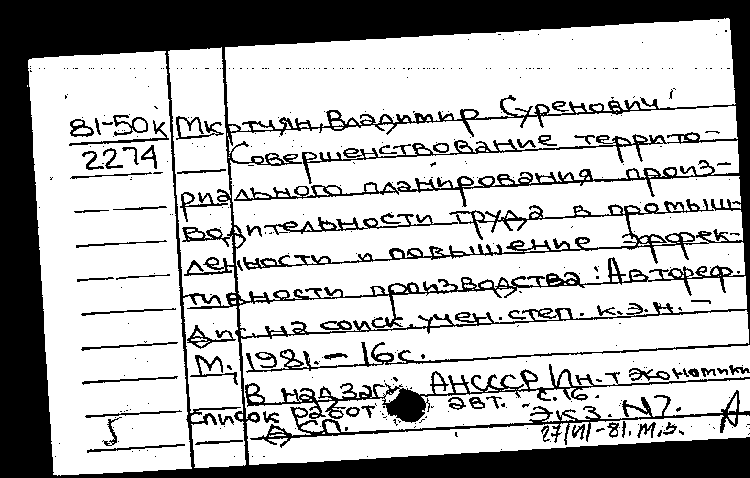 81-50к Мкртчян, Владимир Суренович
2274 Совершенствование террито-
риального планирования произ-
водительности труда в промыш-
ленности и повышение эффек-
тивности производства: Автореф.
дис. на соиск. учен. степ. к.э.н. -
М., 1981. - 16с.
В надзаг.: АНСССР Ин-т экономики
Список работ авт. с.16.
ДСП. Экз. N7.
27/VII-81. М.Б.